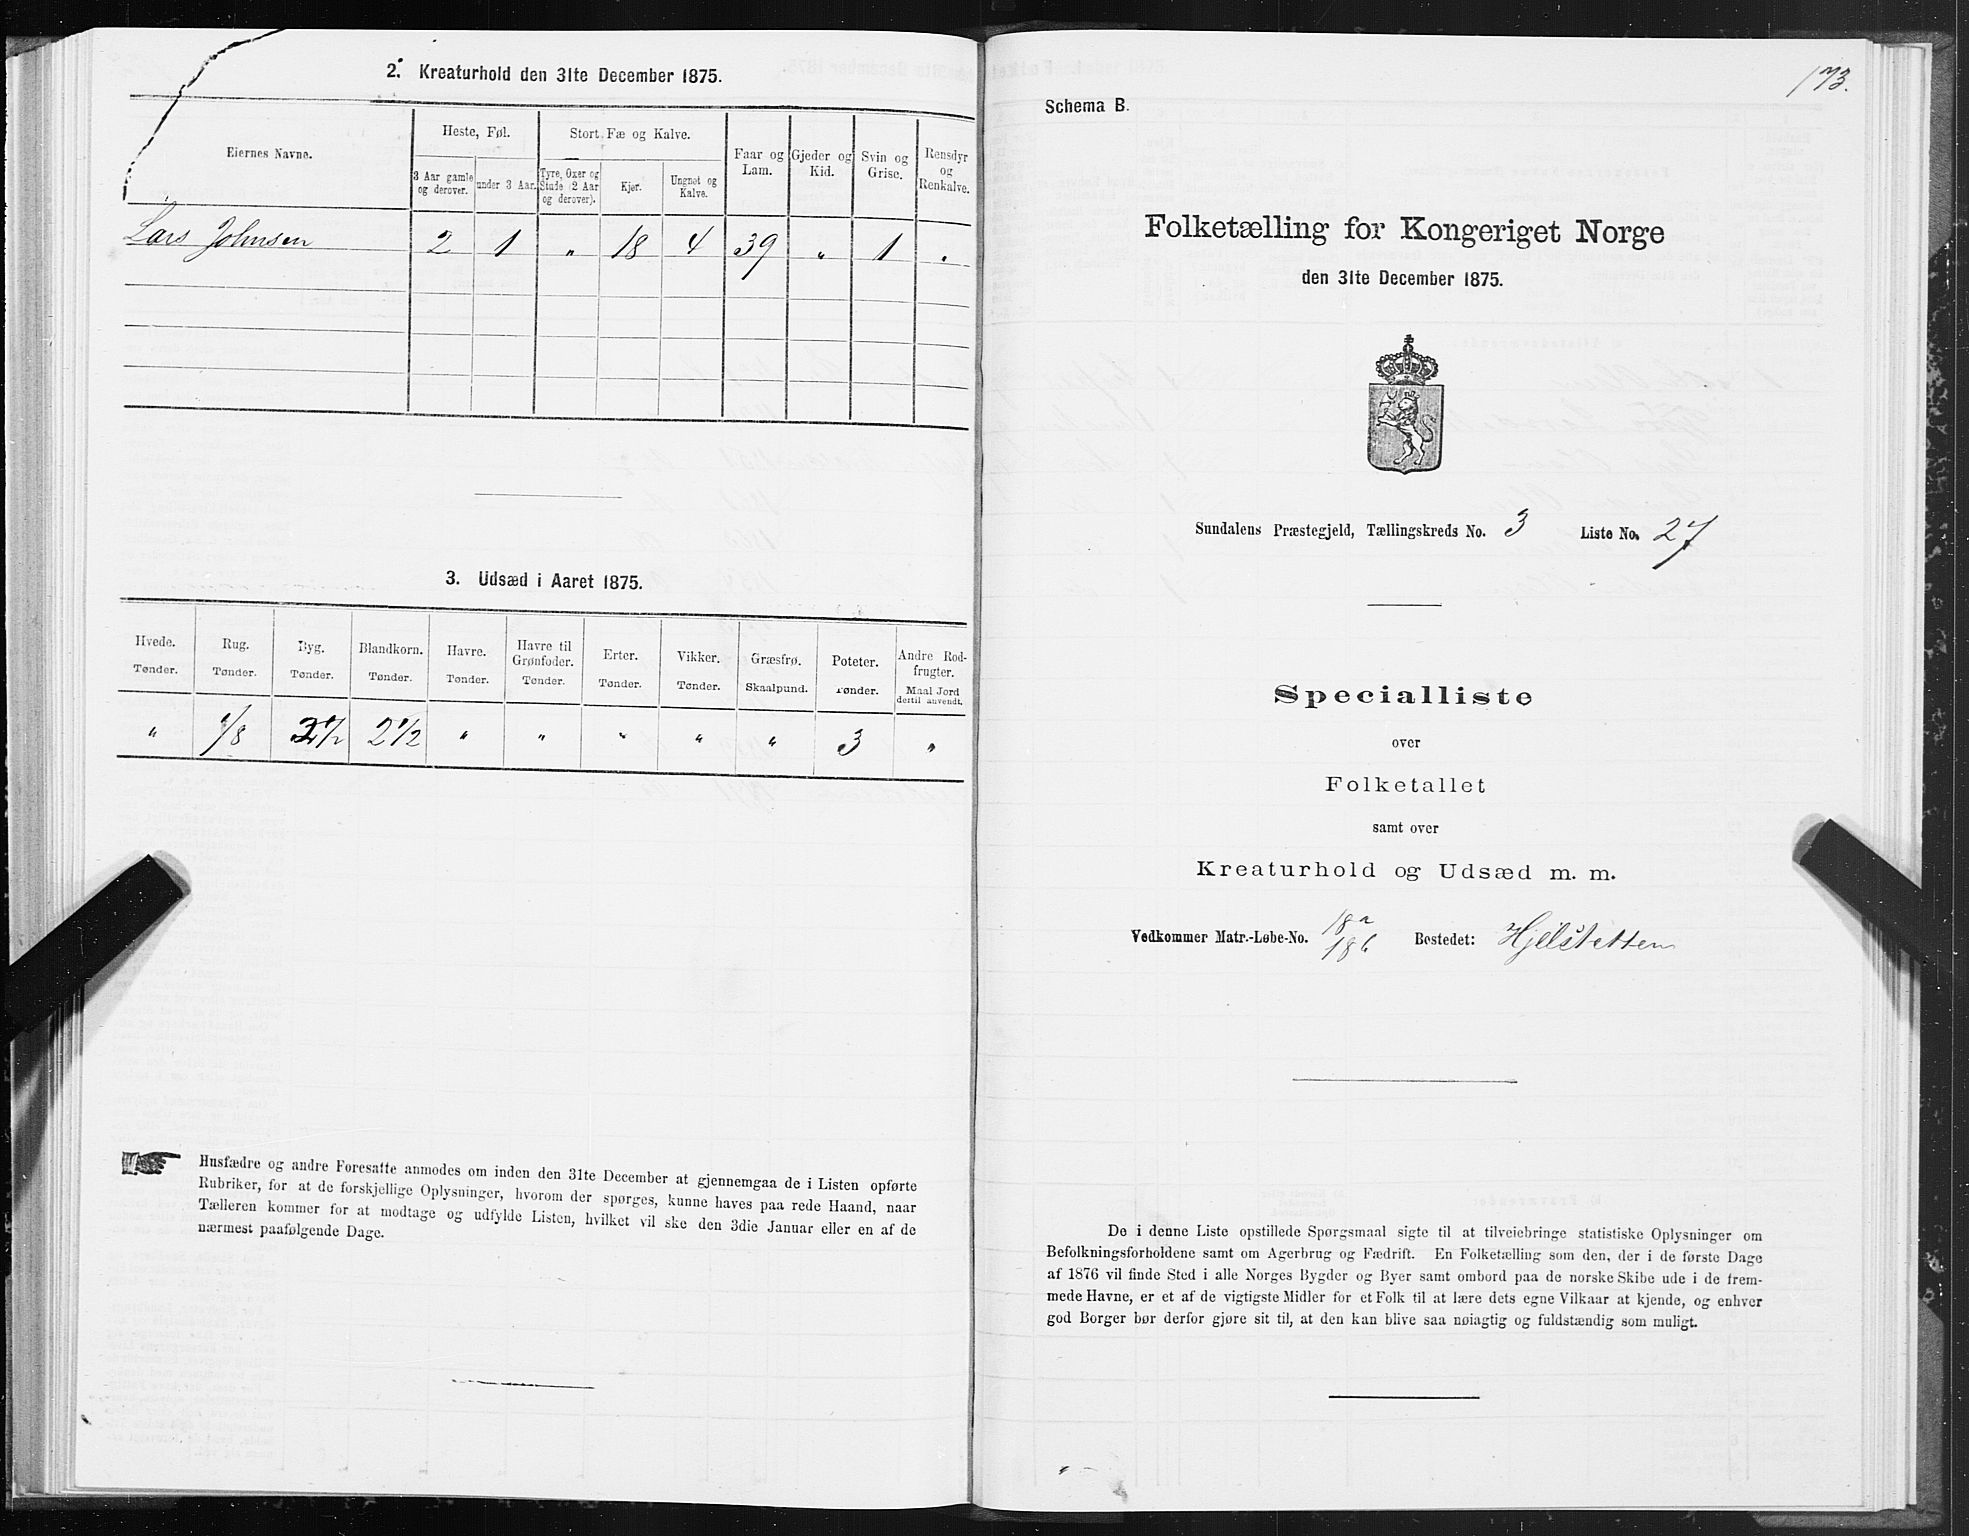 2. Kreaturhold den 31te December 1875.
Eiernes Navne.
Heste, Føl.
Stort Fæ og Kalve.
Faar og Lam.
Gjeder og Kid.
Svin og Grise.
Rensdyr og Renkalve.
3 Aar gamle og derover.
under 3 Aar.
Tyre, Oxer og Stude (2 Aar og derover).
Kjør.
Ungnøt og Kalve.
Lars Johnsen 2 1 " 18 4 39 " 1 "
3. Udsæd i Aaret 1875.
Hvede. Rug. Byg. Blandkorn. Havre. Havre til Grønfoder. Erter. Vikker. Græsfrø. Poteter. Andre Rodfrugter.
Tønder. Tønder. Tønder. Tønder. Tønder. Tønder. Tønder. Tønder. Skaalpund. Tønder. Maal Jord dertil anvendt.
" 1/8 2 1/2 " " " " " 3 "
Husfædre og andre Foresatte anmodes om inden den 31te December at gjennemgaa de i Listen opførte
Rubriker, for at de forskjellige Oplysninger, hvorom der spørges, kunne haves paa rede Haand, naar
Tælleren kommer for at modtage og udfylde Listen, hvilket vil ske den 3die Januar eller en af de
nærmest paafølgende Dage.
173.
Schema B.
Folketælling for Kongeriget Norge
den 31te December 1875.
Sundalens Præstegjeld, Tællingskreds No. 3 Liste No. 27
Specialliste
over
Folketallet
samt over
Kreaturhold og Udsæd m. m.
Vedkommer Matr.-Løbe-No. 18a 18b Bostedet: Hjelstetten
De i denne Liste opstillede Spørgsmaal sigte til at tilveiebringe statistiske Oplysninger om
Befolkningsforholdene samt om Agerbrug og Fædrift. En Folketælling som den, der i de første Dage
af 1876 vil finde Sted i alle Norges Bygder og Byer samt ombord paa de norske Skibe ude i de frem-
mede Havne, er et af de vigtigste Midler for et Folk til at lære dets egne Vilkaar at kjende, og enhver
god Borger bør derfor gjøre sit til, at den kan blive saa nøiagtig og fuldstændig som muligt.